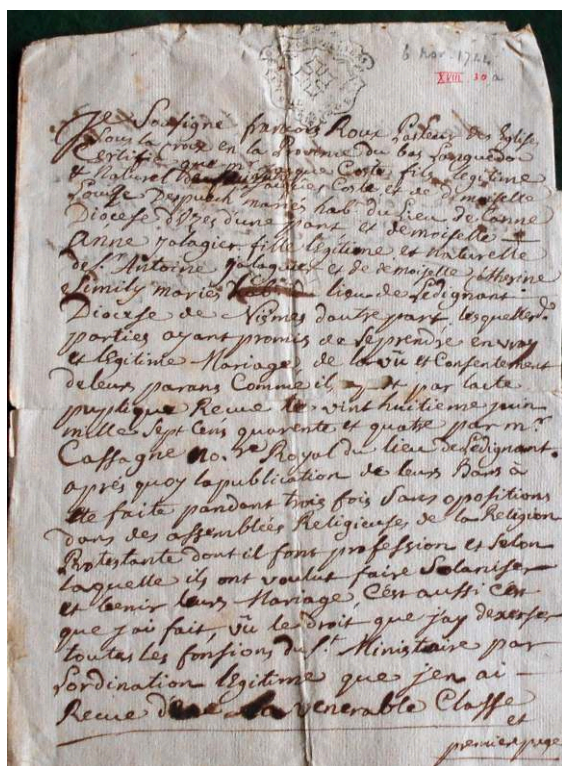 6 nov. 1744
XVIII 30 a
Je Soussigné francois Roux Pasteur des Eglises
Sous la croix en la Province du bas Languedoc
Certifie que mr que Coste fils legitime
& Naturel Coste et de demoiselle
Louise Despuech mariés hab. du Lieu de Canne
Diocese d'Uzes d'une part et demoiselle
Anne Jalaguier fille legitime et naturelle
de Sr. Antoine Jalaguier et de demoiselle Catherine
Simily mariés lieu de Lédignant
Diocese de Nismes d'autre part lesquelles do
parties ayant promis de se prendre en vray
et legitime Mariage de la vû et Consentement
de leurs parans Comme il y et par l'acte
puplique Recue le vint huitieme juin
mille Sept Cens quarente et quatre par mr.
Cassagne no.re Royal du lieu de Lédignant.
aprés quoy la publication de leurs Bans à
ete faite pandant trois fois Sans opositions
dans des assemblées Religieuses de la Religion
Protestante dont il font profession et Selon
laquelle ils ont voulut faire Solaniser
et benir leurs Mariage C'en aussi C'en
que j'ai fait vû le droit que jay dexerser
toutes les fonsions du St. Ministaire par
Lordination legitime que jen ai
Recue de la venerable Classe
et
premier page